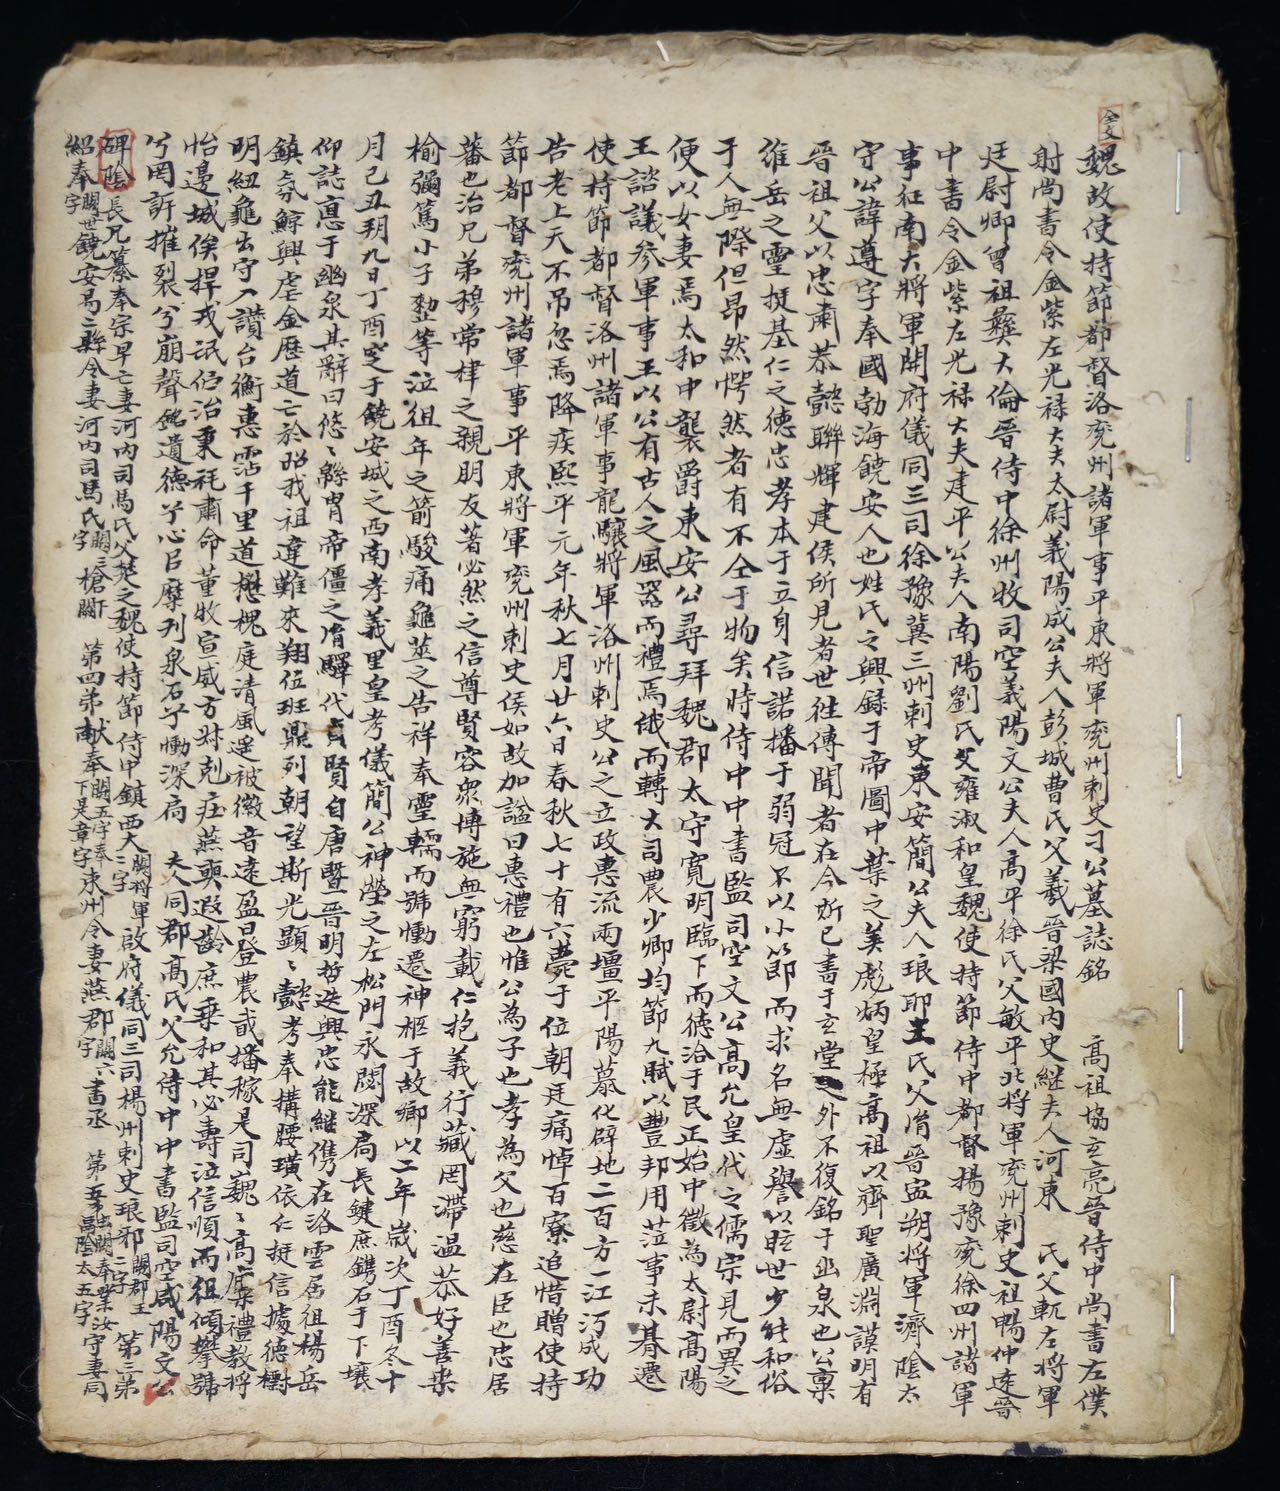 全文
魏故使持節都督洛兖州諸軍事平東將軍兖州刺史刁公墓誌銘 高祖協玄亮晉侍中尚書左僕
射尚書令金紫左光禄大夫太尉義陽成公夫人彭城曹氏父羲晉梁國内史継夫人河東 氏父軌左将軍
廷尉卿曾祖彝大倫晉侍中徐州牧司空義陽文公夫人高平徐氏父敏平北将軍兖州刺史祖暢仲逵晉
中書令金紫左光禄大夫建平公夫人南陽劉氏父雍淑和皇魏使持節侍中都督揚豫兖徐四州諸軍
事征南大將軍開府儀同三司徐豫冀三州刺史東安簡公夫人琅耶王氏父㣧晉寍朔将軍濟隂太
守公諱遵字奉國勃海饒安人也姓氏之興録于帝圖中葉之美彪炳皇極高祖以齊聖廣淵謨明有
晉祖父以忠肅恭懿聯輝建侯所見者世徃傳聞者在今所已書于玄堂之外不復銘于幽泉也公稟
維岳之靈挺基仁之德忠孝本于立身信諾播于弱冠不以小節而求名無虚譽以眩世少能和俗
于人無際但昂然愕然者有不仝于物矣時侍中中書監司空文公高允皇代之儒宗見而異之
便以女妻焉太和中襲爵東安公尋拜魏郡太守寛明臨下而德洽于民正始中徵為太尉高陽
王諮議參軍事王以公有古人之風器而禮焉俄而轉大司農少卿均節九賦以豐邦用莅事未朞遷
使持節都督洛州諸軍事龍驤將軍洛州刺史公之立政惠流兩壃平陽慕化辟地二百方一江沔成功
告老上天不吊忽焉降疾熙平元年秋七月廿六日春秋七十有六薨于位朝廷痛悼百寮追惜贈使持
節都督兖州諸軍事平東將軍兖州刺史侯如故加謚曰惠禮也惟公為子也孝為父也慈在臣也忠居
蕃也治兄弟穆常棣之親朋友著必然之信尊賢容衆博施無窮載仁抱義行藏罔滯温恭好善桒
榆彌篤小子整等泣徂年之箭駿痛龜莁之告祥奉靈輀而號慟遷神柩于故鄉以二年歲次丁酉冬十
月己丑朔九日丁酉窆于饒安城之西南孝義里皇考儀簡公神塋之左松門永閟深扃長鍵庶鐫石于下壤
仰誌悳于幽泉其辭曰悠〻緜胄帝僵之㣧驛代貞賢自唐暨晉明哲迭興忠能継儁在洛雲居徂楊岳
鎮氛鯨興虐金歷道亡於昭我祖違難來翔伍班鼎列朝望斯光顯〻懿考奉構腰璜依仁挺信據德樹
明紐龜出守入讚台衡惠霑千里道懋槐庭清風遥被徽音遠盈曰登農畝播稼是司巍〻高廩禮教将
怡邊城俟捍戎氓佇治秉秏肅命董牧宣威方对剋疘燕輿遐齡庶乗和其必壽泣信順而徂傾攀號
兮罔訴摧裂兮崩聲銘遺德兮心㠯縻刋泉石兮慟深扃 夫人同郡高氏父允侍中中書監司空咸陽文公
碑陰 長兄纂奉宗早亡妻河内司馬氏父楚之魏使持節侍中鎮西大闕二字將軍啟府儀同三司楊州刺史琅邪闕二字郡王 第三弟
紹奉闕字世饒安馬二縣令妻河内司馬氏闕三字槍闕 第四弟献奉闕五字奉下是章字東州令妻燕郡闕六字書丞